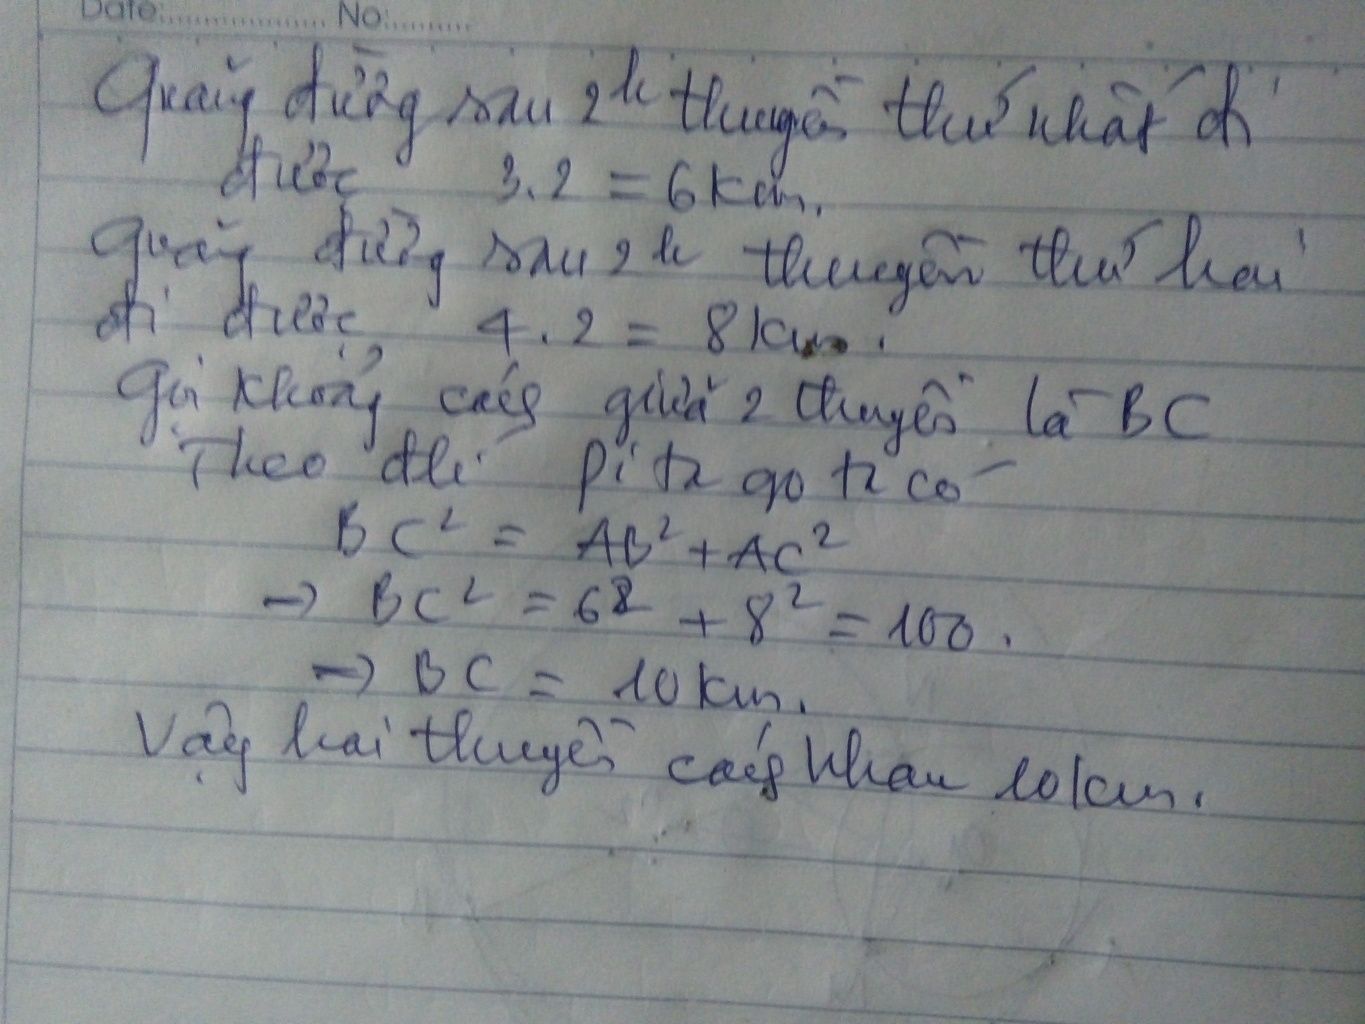 Date:.................. No:..........
Quãng đường sau 2h thuyền thứ nhất đi
được 3.2 = 6km.
Quãng đường sau 2h thuyền thứ hai
đi được 4.2 = 8km.
Gọi khoảng cách giữa 2 thuyền là BC
Theo đlí pi ta go ta có
BC² = AB² + AC²
→ BC² = 6² + 8² = 100.
→ BC = 10km.
Vậy hai thuyền cách nhau 10km.